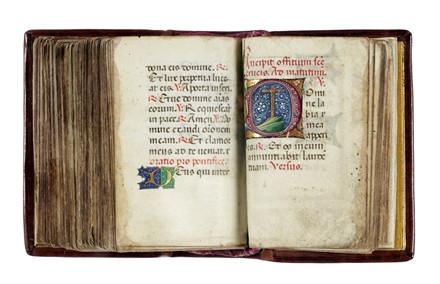 dona eis domine. R.
Et lux perpetua luce
at eis. V. A porta inferi.
R. Erue domine aīas
eorum. V. Requiescāt
in pace. R. Amen. V. Do
mine exaudi orōnem
meam. R. Et clamor
meus ad te veniat.
oratio pro pontifice
Deus qui inter
Incipit offitium sce
crucis. Ad matutinū.
V.
Domi
ne la
bia
mea
apperi
es. R. Et os meum
annuntiabit laudē
tuam. Versus.